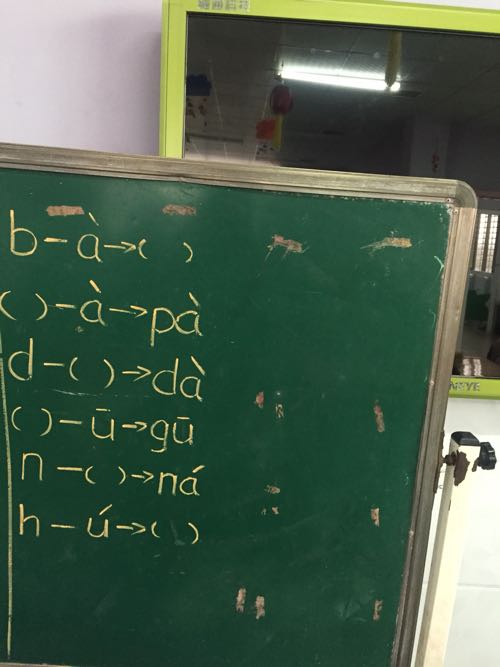 b-à→( )
( )-à→pà
d-( )→dà
( )-ū→gū
n-( )→ná
h-ú→( )